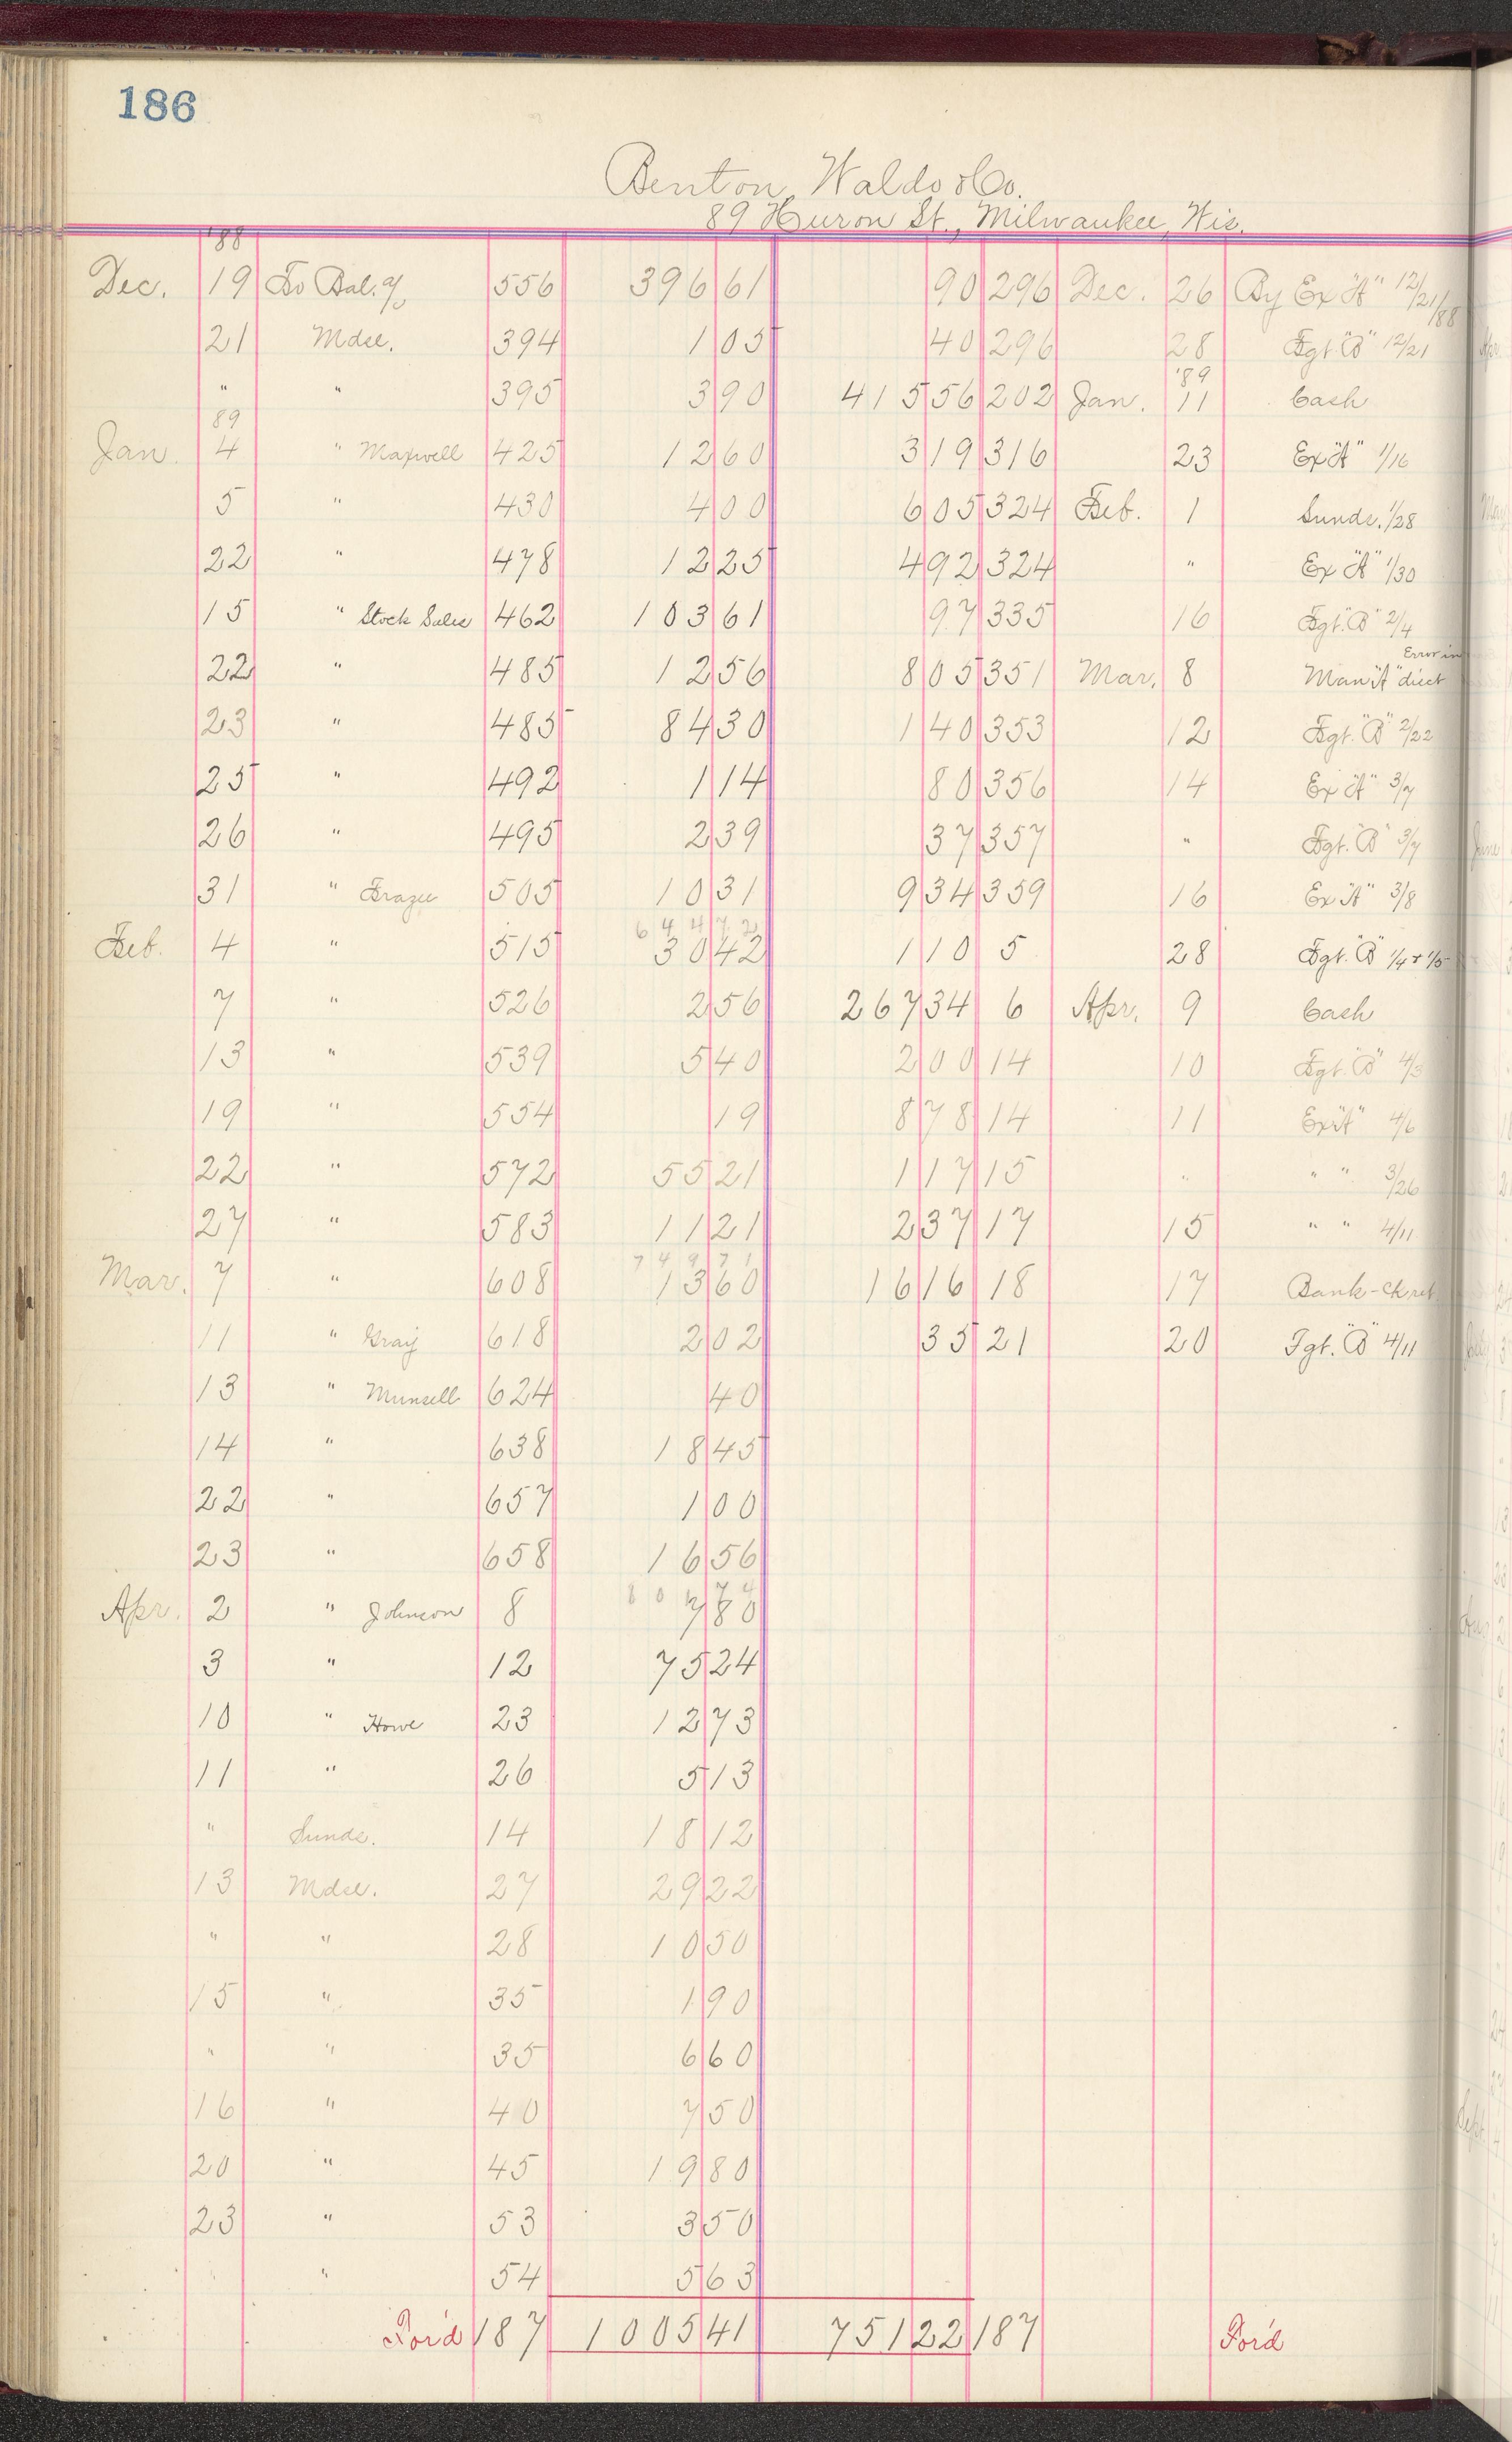 186
Benton, Waldo & Co.
89 Huron St., Milwaukee, Wis.
'88
Dec. 19 To Bal. 556 396 61 90 296 Dec. 26 By Ex "A" 12/21/88
21 Mdse. 394 1 05 40 296 28 Fgt. "B" 12/21
" " 395 3 90 415 56 202 Jan. '89 11 Cash
Jan. 89 4 " Maxwell 425 12 60 3 19 316 23 Ex "A" 1/16
5 " 430 4 00 6 05 324 Feb. 1 Sunds. 1/28
22 " 478 12 25 4 92 324 " Ex "A" 1/30
15 " Stock Sales 462 103 61 97 335 16 Fgt. "B" 2/4
22 " 485 12 56 8 05 351 Mar. 8 Man "A" Error in diect
23 " 485 84 30 1 40 353 12 Fgt. "B" 2/22
25 " 492 1 14 80 356 14 Ex "A" 3/7
26 " 495 2 39 37 357 " Fgt. "B" 3/7
31 " Frazee 505 10 31 9 34 359 16 Ex "A" 3/8
644 72
Feb. 4 " 515 30 42 1 10 5 28 Fgt. "B" 1/4 & 1/5
7 " 526 2 56 267 34 6 Apr. 9 Cash
13 " 539 5 40 2 00 14 10 Fgt. "B" 4/3
19 " 554 19 8 78 14 11 Ex "A" 4/6
22 " 572 55 21 1 17 15 " " " 3/26
27 " 583 11 21 2 37 17 15 " " 4/11
749 71
Mar. 7 " 608 13 60 16 16 18 17 Bank - Ck ret
11 " Gray 618 2 02 35 21 20 Fgt. "B" 4/11
13 " Munsell 624 40
14 " 638 18 45
22 " 657 1 00
23 " 658 16 56
Apr. 2 " Johnson 8 7 80
3 " 12 75 24
10 " Howe 23 12 73
11 " 26 5 13
" Sunds. 14 18 12
13 Mdse. 27 29 22
" " 28 10 50
15 " 35 1 90
" " 35 6 60
16 " 40 7 50
20 " 45 19 80
23 " 53 3 50
" 54 5 63
For'd 187 1005 41 751 22 187 For'd